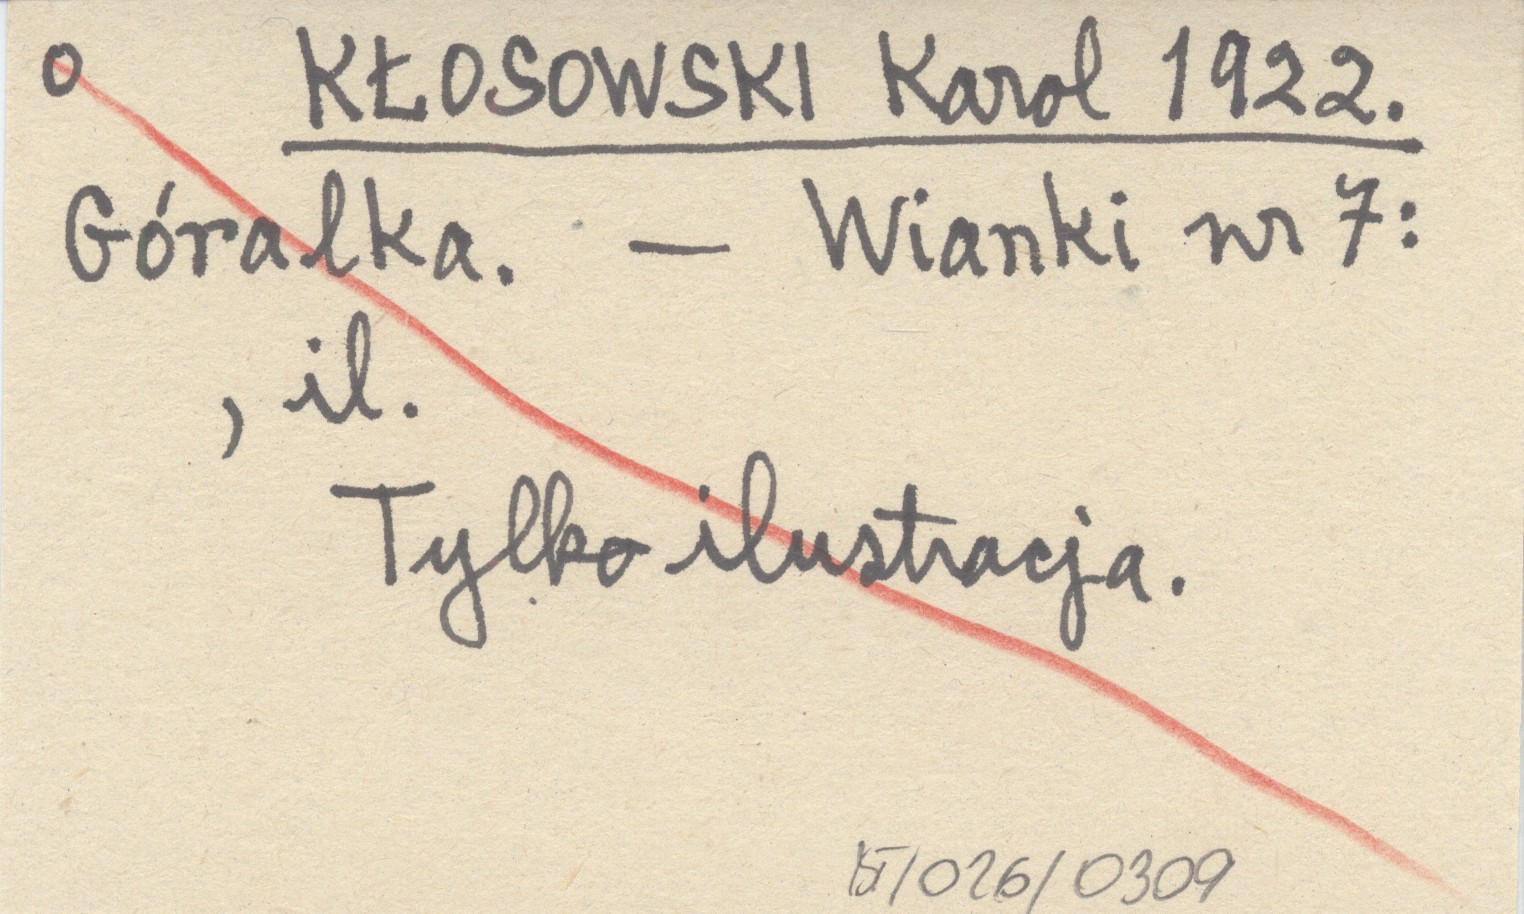 o KŁOSOWSKI Karol 1922.
Góralka. — Wianki nr 7:
, il.
Tylko ilustracja.
/026/0309